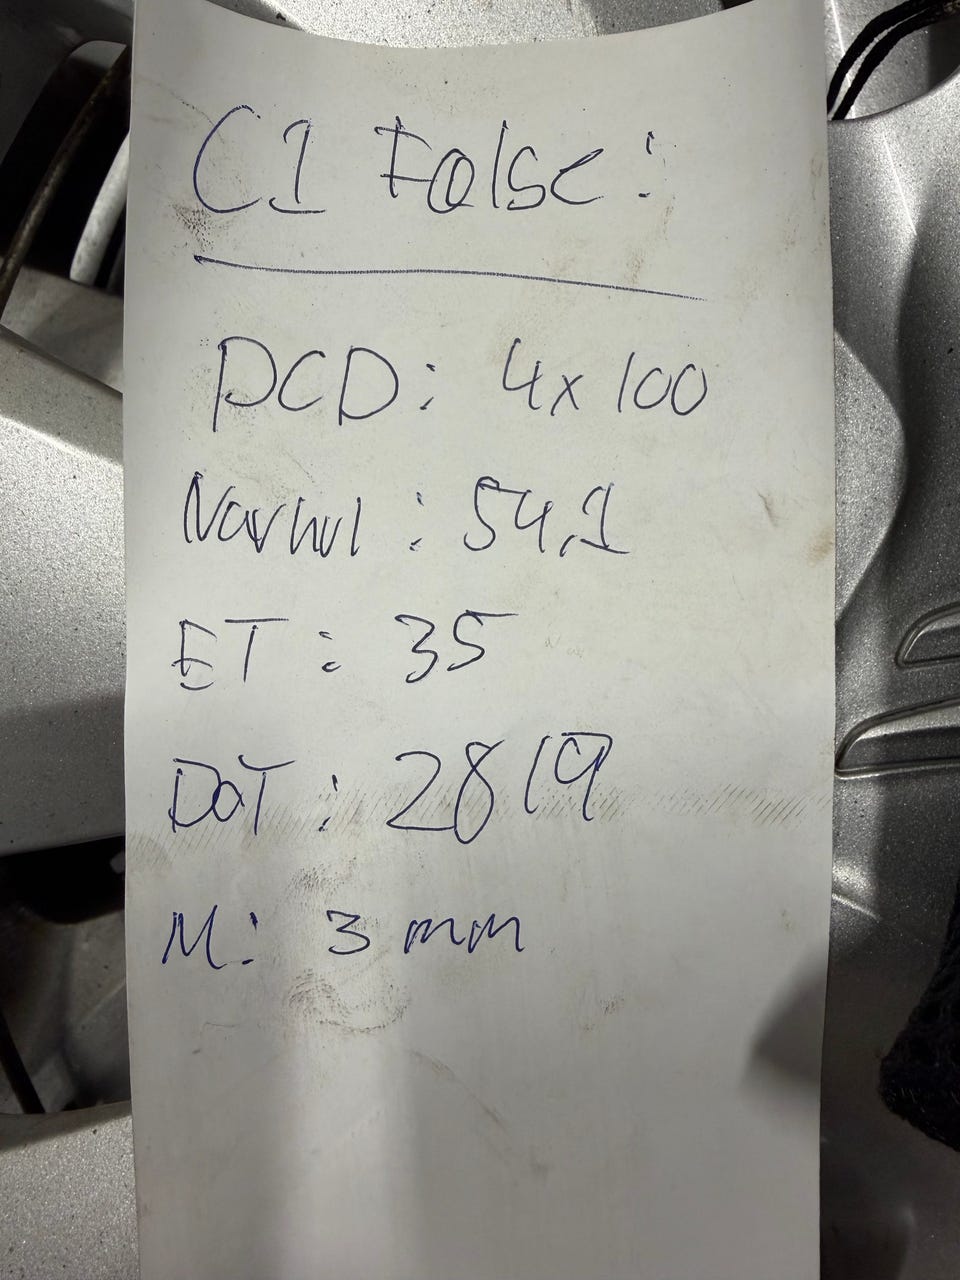 C1 Fælge:
PCD: 4x100
Navhul: 54,1
ET: 35
DOT: 2819
M: 3 mm